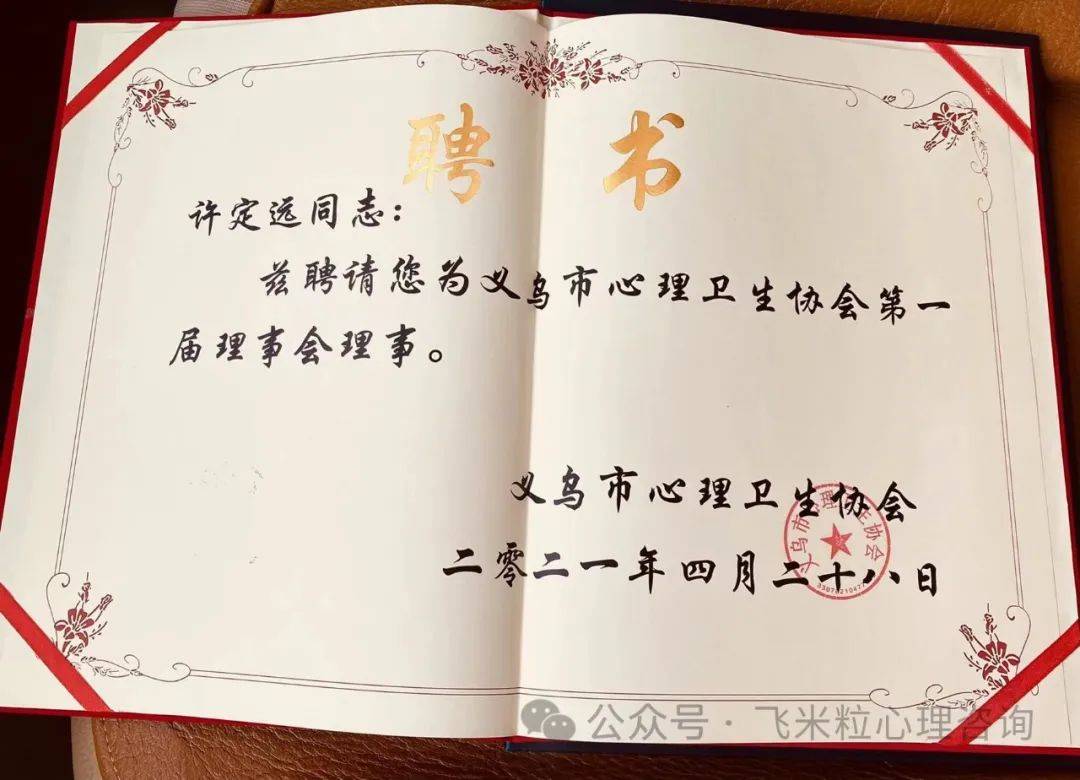 聘书
许定远同志：
兹聘请您为义乌市心理卫生协会第一
届理事会理事。
义乌市心理卫生协会
二零二一年四月二十八日
公众号·飞米粒心理咨询